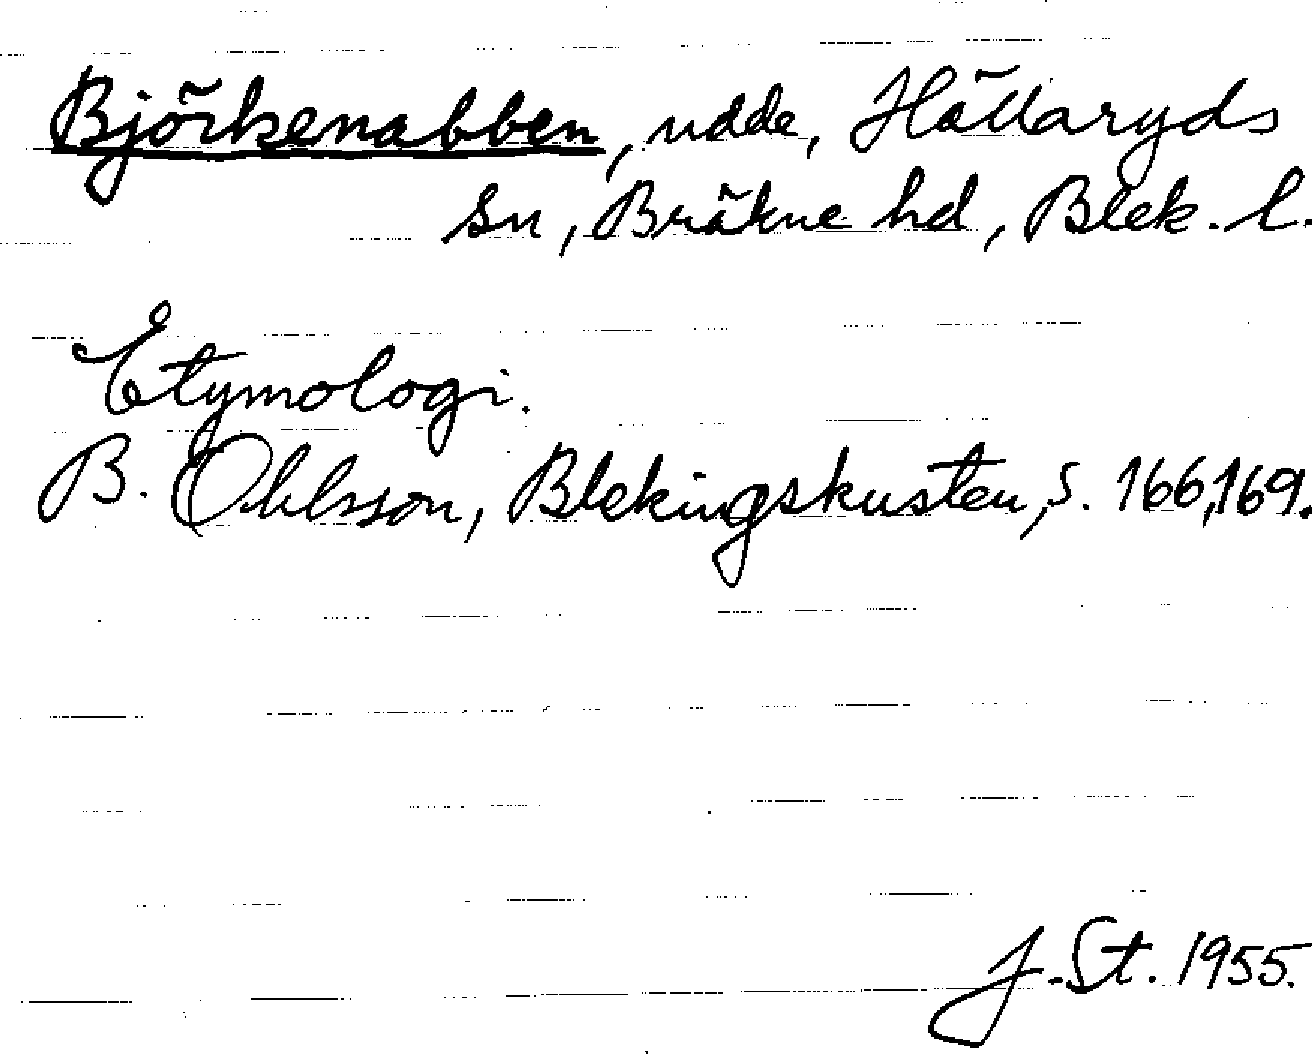 Björkenabben, udde, Hällaryds
sn, Bräkne hd, Blek. l.
Etymologi.
B. Ohlsson, Blekingskusten, s. 166, 169.
J. St. 1955.